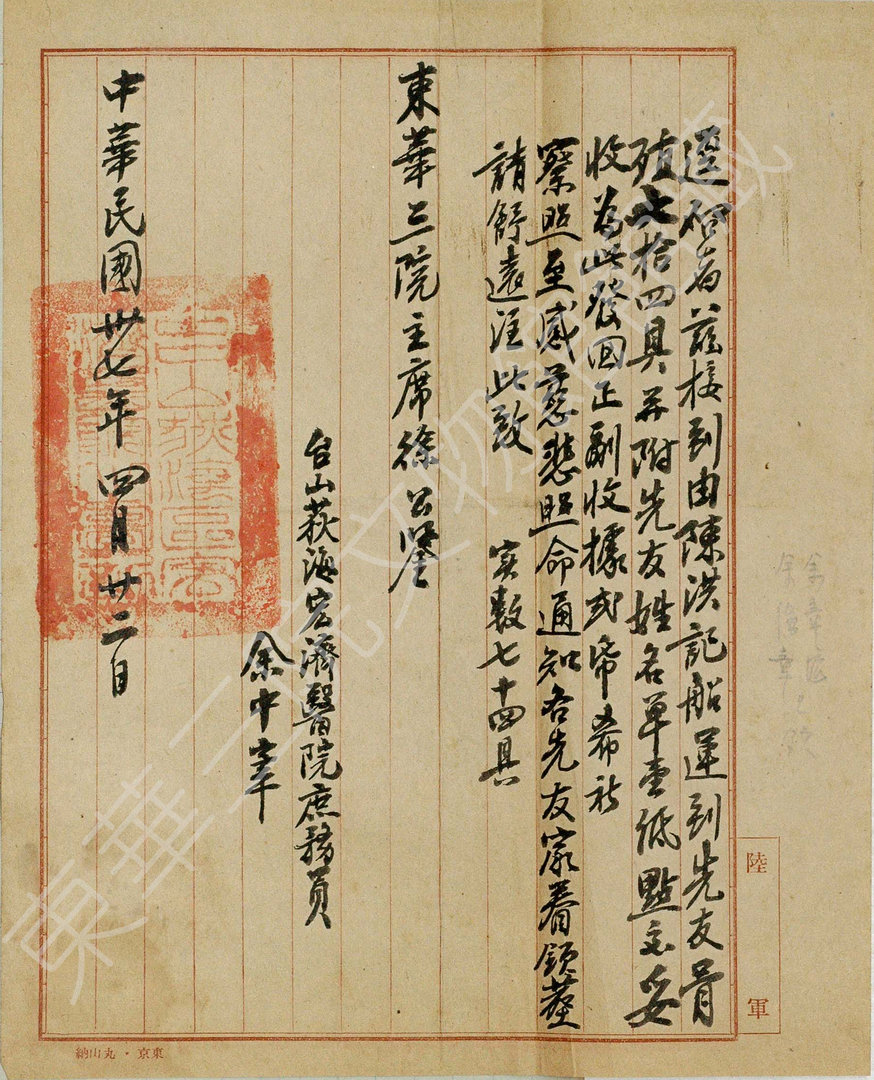 逕啓者茲接到由陳洪記船運到先友骨
殖七拾四具并附先友姓名單壹紙點交妥
收為此發回正副收據弍帋希祈
察照至感慈悲照命通知各先友家眷領葬
請舒遠注此致　実數七十四具
東華三院主席徐公鑒
台山荻海宏濟醫院庶務員
余中

中華民國卅七年四月廿二日
陸軍
東京・丸山納
東華三院文物館藏